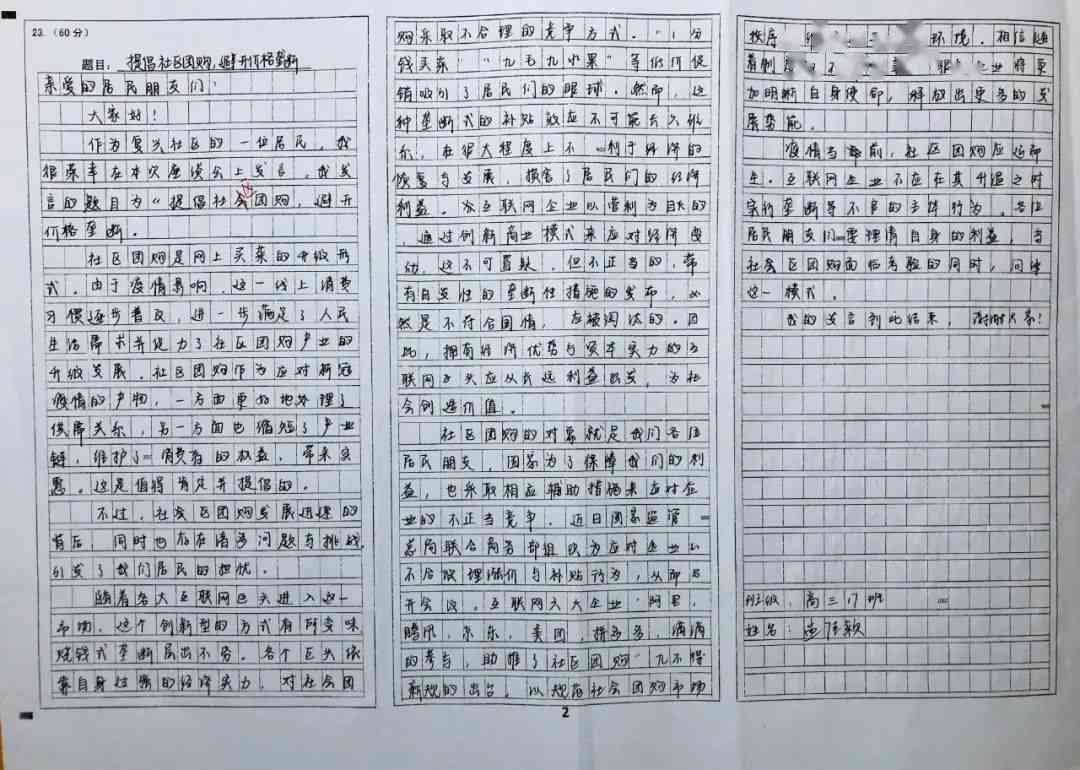 23.（60分）
题目：提倡社区团购,避开价格垄断
亲爱的居民朋友们：
大家好！
作为复兴社区的一位居民，我
很荣幸在本次座谈会上发言，我发
言的题目为“提倡社区团购，避开
价格垄断。
社区团购是网上买菜的升级形
式。由于疫情影响，这一线上消费
习惯逐步普及，进一步满足了人民
生活需求并促力了社区团购产业的
升级发展。社区团购作为应对新冠
疫情的产物，一方面更好地处理了
供需关系，另一方面也缩短了产业
链，维护了消费者的权益，带来实
惠。这是值得肯定并提倡的。
不过，社区团购发展迅速的
背后，同时也存在诸多问题与挑战，
引发了我们居民的担忧。
随着各大互联网巨头进入这一
市场，这个创新型的方式有所变味
烧钱式垄断层出不穷。各个巨头依
靠自身的经济实力，对社会团
购采取不合理的竞争方式。“1分
钱买菜”“九毛九水果”等低价促
销吸引了居民们的眼球。然而，这
种垄断式的补贴效应不可能长久维
系，在很大程度上不利于经济的
恢复与发展，损害了居民们的经济
利益。互联网企业以营利为目的
，通过创新商业模式来应对经济变
动，这不可置疑，但不正当的，带
有自发性的垄断性措施的发布，必
然是不符合国情，应被淘汰的。因
此，拥有经济优势与资本实力的互
联网巨头应从长远利益出发，为社
会创造价值。
社区团购的对象就是我们各位
居民朋友，国家为了保障我们的利
益，也采取相应辅助措施来应对企
业的不正当竞争。近日国家监管
总局联合商务部组织为应对企业以
不合理涨价与补贴行为，从而召
开会议。互联网六大企业：阿里，
腾讯，京东，美团，拼多多，滴滴
的参与，助推了社区团购“九不得”
新规的出台。以规范社会团购市场
秩序 环境。相信随
着制 企业将更
加明晰自身使命，释放出更多的发
展势能。
疫情当前，社区团购应运而
生。互联网企业不应在其升温之时
实行垄断等不良的主体行为。各位
居民朋友们要理清自身的利益，当
社会区团购面临考验的同时，
这一模式。
我的发言到此结束，谢谢大家！
班级：高三17班
姓名：
2